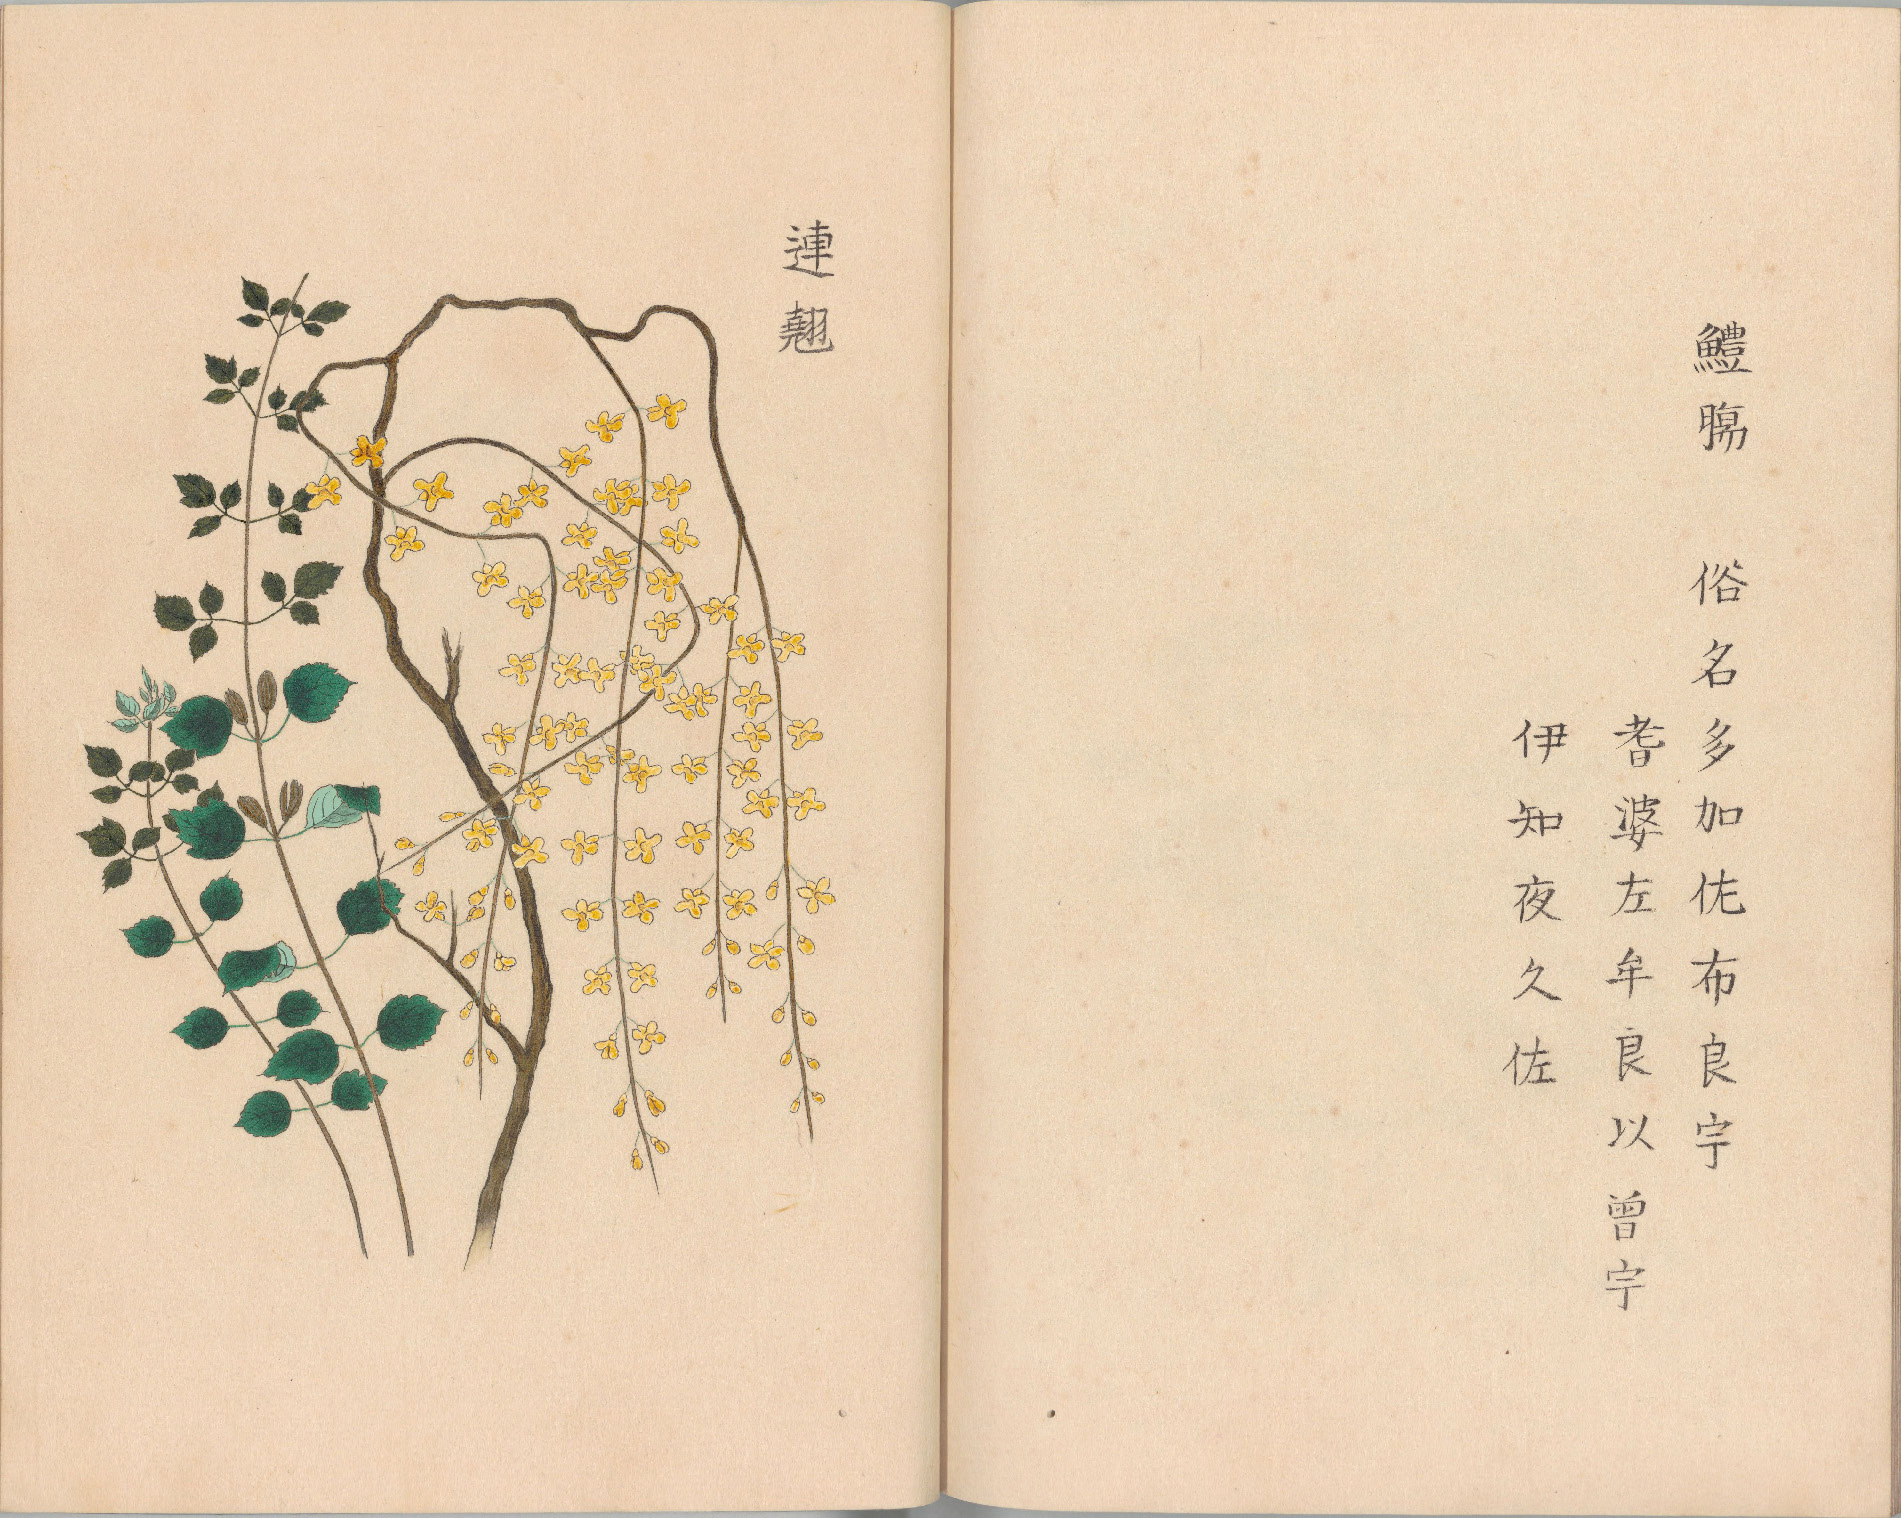 鱧膓 俗名多加佗布良宇
耆婆左牟良以曾宇
伊知夜久佐
連翹